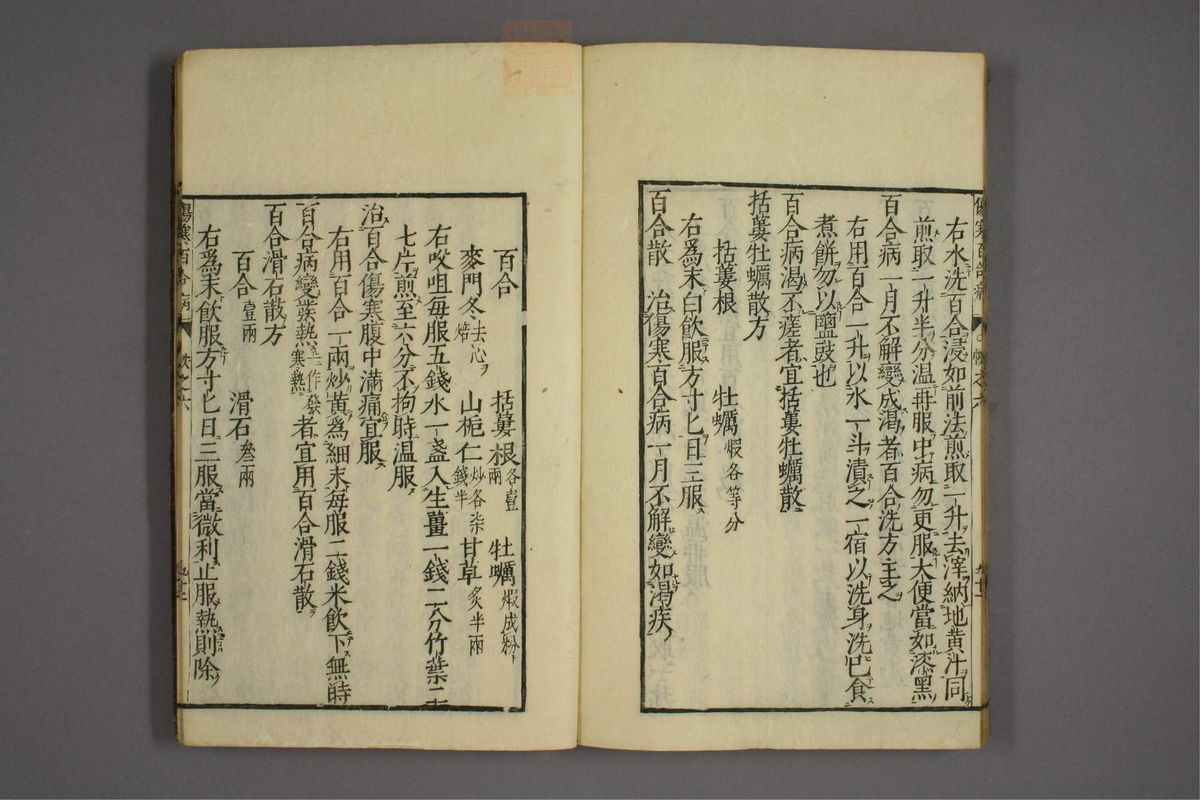 右水洗百合浸如前法煎取一升去滓納地黄汁同
煎取一升半分温再服中病勿更服大便當如漆黑
百合病一月不解變成渴者百合洗方主之
右用百合一升以水一斗漬之一宿以洗身洗巳食
煮餅勿以鹽豉也
百合病渴不瘥者宜括蔞牡蠣散
括蔞牡蠣散方
括蔞根 牡蠣煆各等分
右爲末白飲服方寸匕日三服
百合散 治傷寒百合病一月不解變如渴疾
百合 括蔞根各壹兩 牡蠣煆成粉
麥門冬去心焙 山梔仁炒各柒錢半 甘草炙半兩
右㕮咀每服五錢水一盞入生薑一錢二分竹葉二十
七片煎至六分不拘時温服
治百合傷寒腹中滿痛宜服
右用百合一兩炒黄爲細末每服二錢米飲下無時
百合病變發熱一作發寒熱者宜用百合滑石散
百合滑石散方
百合壹兩 滑石叁兩
右爲末飲服方寸匕日三服當微利止服熱則除
傷寒百合病
帙之六